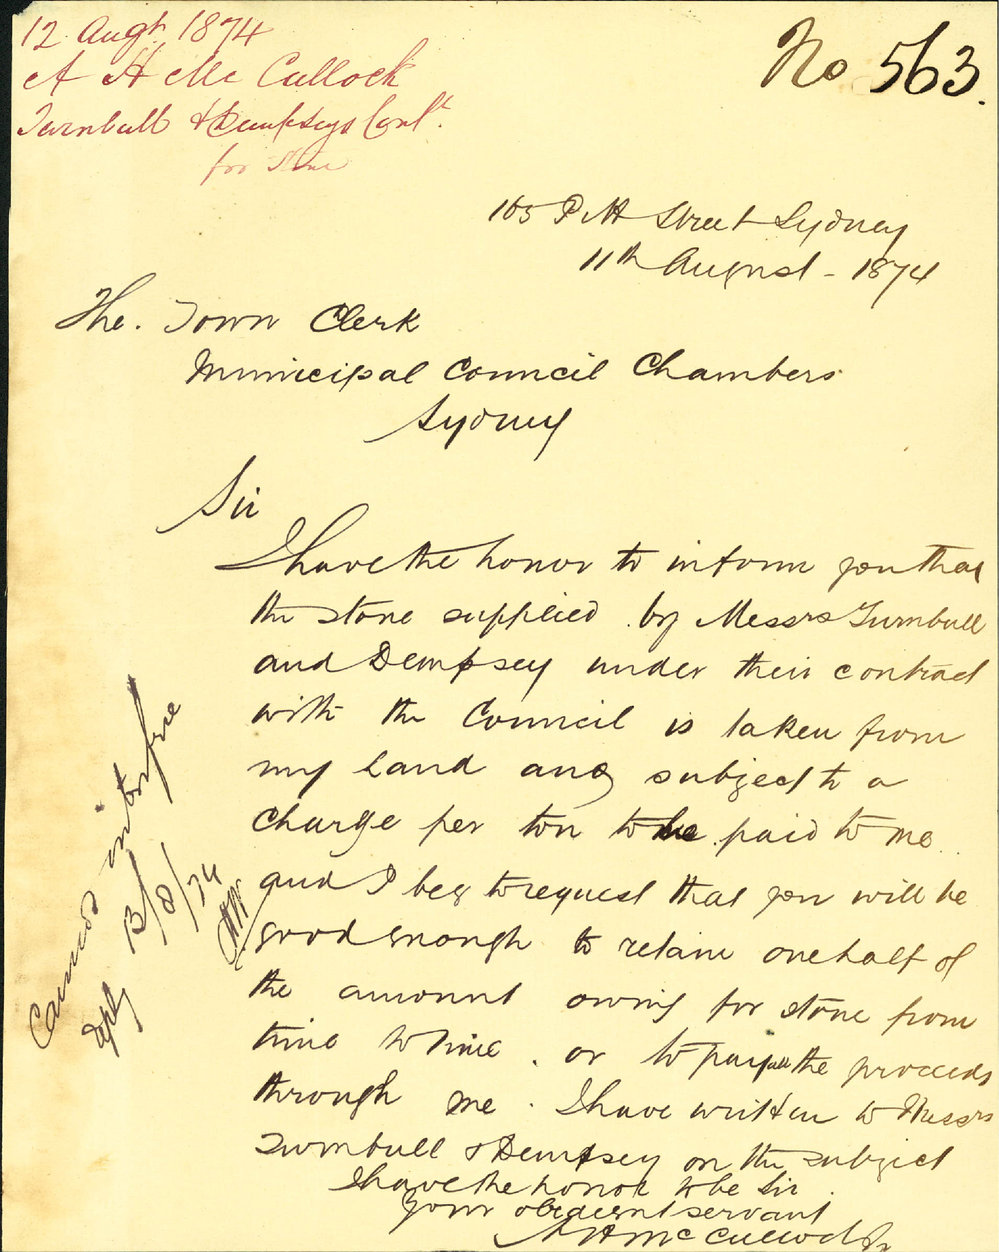 12 Augt 1874
A H McCullock
Turnbull & Dempseys Cont.
for Stone
No 563.
165 Pitt Street Sydney
11th August - 1874
The. Town Clerk
Municipal Council Chambers
Sydney
Sir
I have the honor to inform you that
the stone supplied by Messrs Turnbull
and Dempsey under their contract
with the Council is taken from
my land and subject to a
charge per ton to be paid to me
and I beg to request that you will be
good enough to retain one half of
the amount owing for stone from
time to time. or to pay all the proceeds
through me. I have written to Messrs
Turnbull & Dempsey on the subject
I have the honor to be Sir
Your obedient servant
A H McCulloch Jr
Cannot interfere
reply 13/8/74